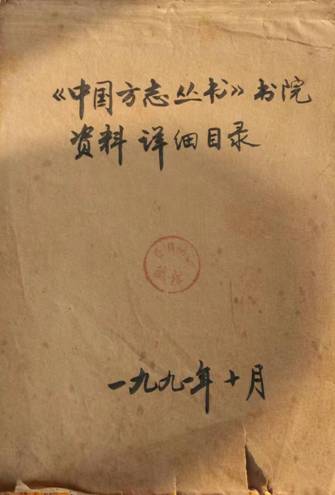 《中国方志丛书》书院
资料详细目录
一九九一年十月